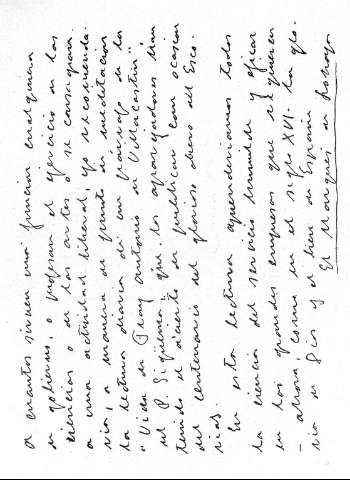 a cuantos sirven una función cualquiera
de gobierno, o profesan el ejercicio de las
ciencias o de las artes o se consagran
a una actividad liberal, yo recomenda-
ría, a manera de punto de meditación
la lectura diaria de un párrafo de la
"Vida de Fray Antonio de Villacastín"
del P. Sigüenza que los aparejadores han
tenido el acierto de publicar con ocasión
del centenario del glorioso obrero del Esco-
rial.
En esta lectura aprenderíamos todos
la ciencia del servicio humilde y eficaz
en las grandes empresas que requieren
- ahora, como en el siglo XVI - la glo-
ria de Dios y el bien de España
El Marqués de Lozoya